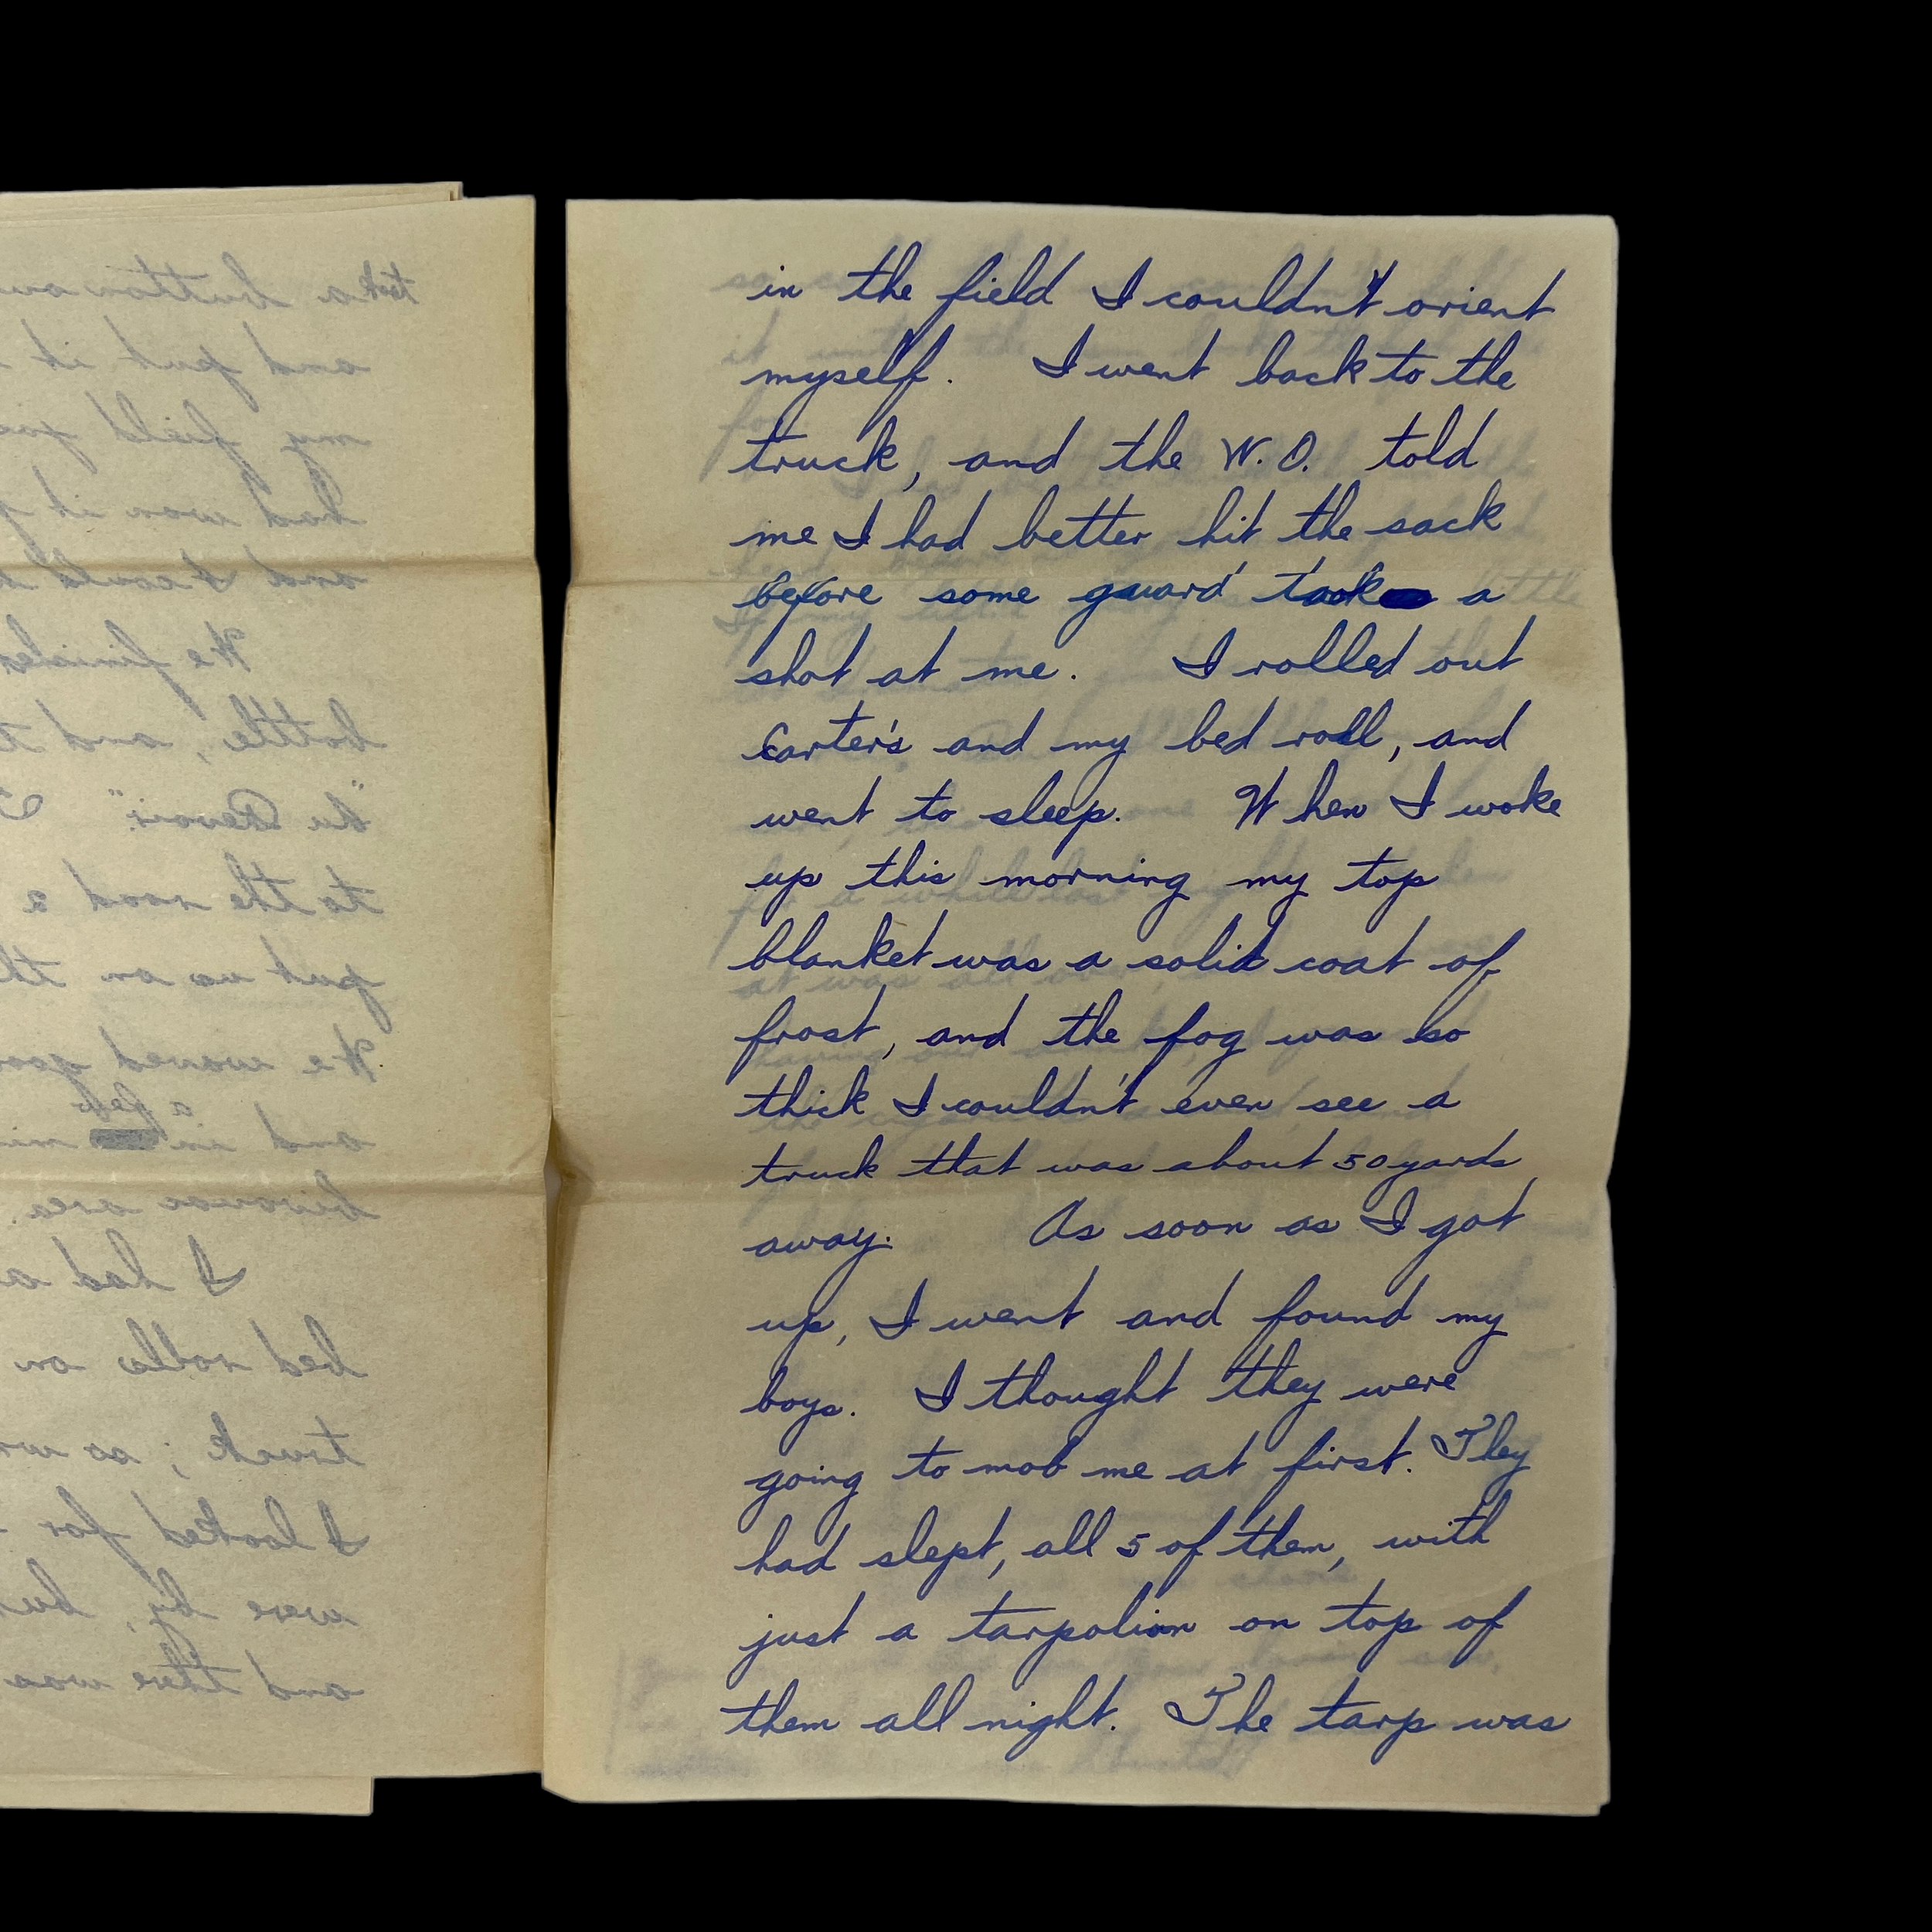 took a button
and put it
my field
had won it
and I could
He finished
bottle, and
"Au Revoir".
to the road a
put us on
He waved
a few
and in
bivouac area.
I had a
bed rolls on
truck; so
I looked for
were by,
and there was
in the field I couldn't orient
myself. I went back to the
truck, and the W.O. told
me I had better hit the sack
before some guard took a
shot at me. I rolled out
Carter's and my bed roll, and
went to sleep. When I woke
up this morning my top
blanket was a solid coat of
frost, and the fog was so
thick I couldn't even see a
truck that was about 50 yards
away. As soon as I got
up, I went and found my
boys. I thought they were
going to mob me at first. They
had slept, all 5 of them, with
just a tarpolian on top of
them all night. The tarp was